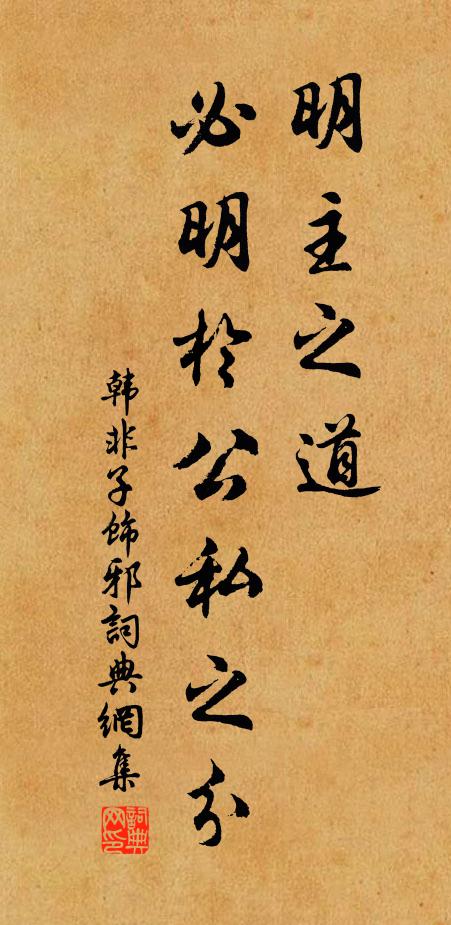 明主之道
必明於公私之分
韩非子飾邪詞典網集
詞典網印